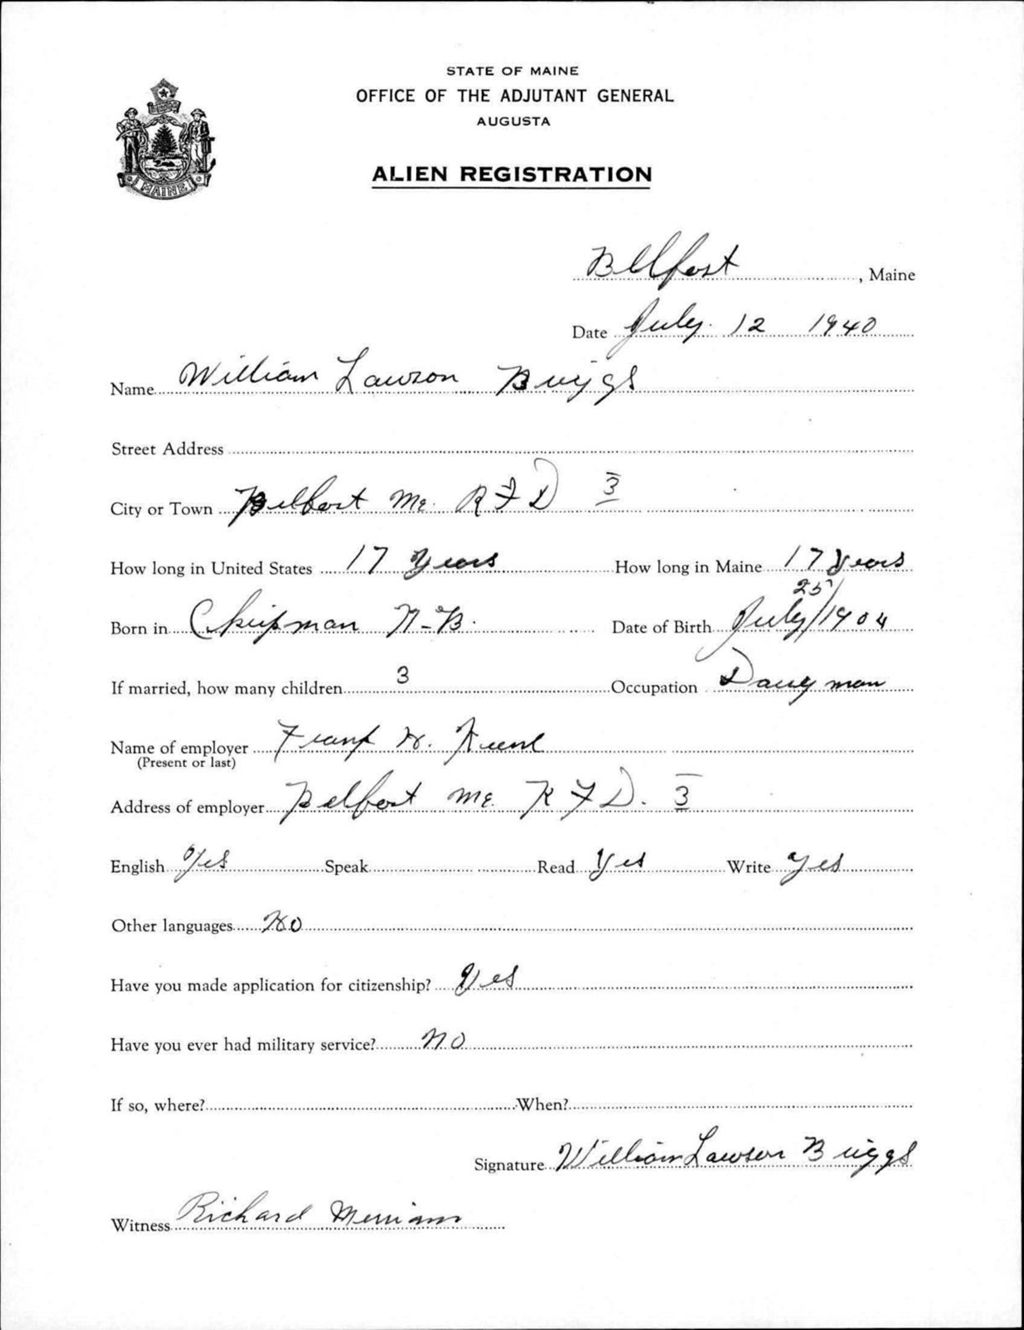 STATE OF MAINE
OFFICE OF THE ADJUTANT GENERAL
AUGUSTA
ALIEN REGISTRATION
MAINE
Belfast, Maine
Date July 12 1940
Name William Lawson Briggs
Street Address
City or Town Belfast Me. R F D 3
How long in United States 17 Years How long in Maine 17 Years
Born in Chipman N-B. Date of Birth July 25/1904
If married, how many children 3 Occupation Dairyman
Name of employer Frank W.
(Present or last)
Address of employer Belfast Me. R F D. 3
English Yes Speak Read Yes Write Yes
Other languages No
Have you made application for citizenship? Yes
Have you ever had military service? No
If so, where? When?
Signature William Lawson Briggs
Witness Richard Merriam